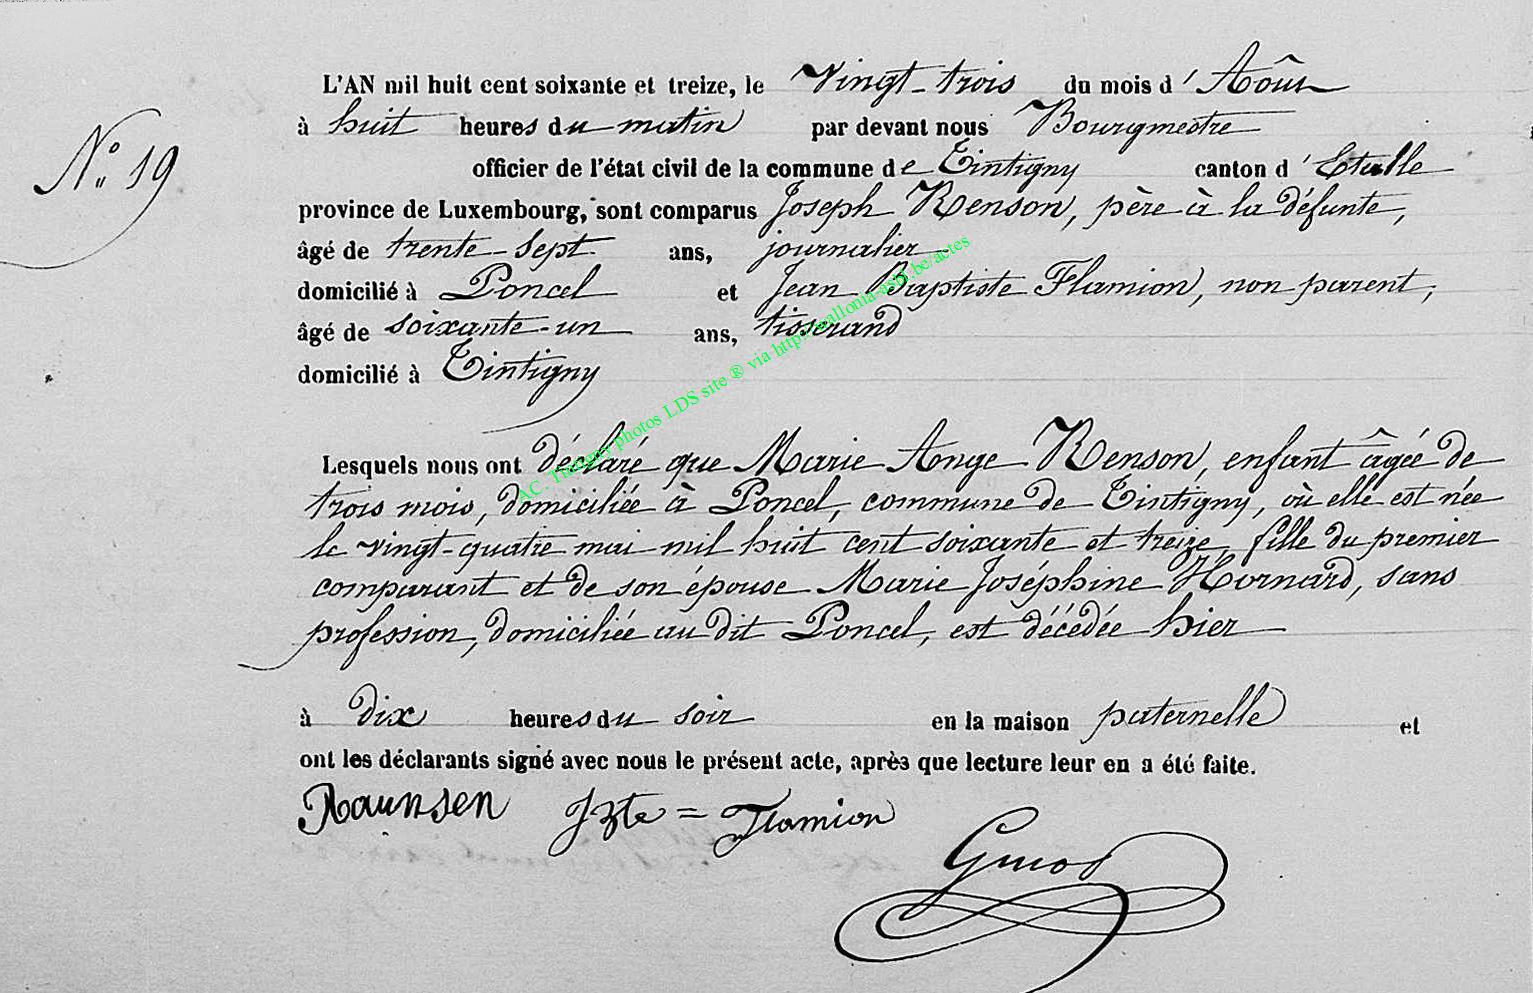 L'AN mil huit cent soixante et treize, le vingt-trois du mois d'Aôut
à huit heures du matin par devant nous Bourgmestre
N° 19
officier de l'état civil de la commune de Tintigny canton d'Etalle
province de Luxembourg, sont comparus Joseph Renson, père à la défunte,
âgé de trente-sept ans, journalier
domicilié à Poncel et Jean Baptiste Flamion, non parent,
âgé de soixante-un ans, tisserand
domicilié à Tintigny
AC. Tintigny photos LDS site ® via http://wallonia-asbl.be/actes
Lesquels nous ont déclaré que Marie Ange Renson, enfant âgée de
trois mois, domiciliée à Poncel, commune de Tintigny, où elle est née
le vingt-quatre mai mil huit cent soixante et treize, fille du premier
comparant et de son épouse Marie Joséphine Hornard, sans
profession, domiciliée au dit Poncel, est décédée hier
à dix heures du soir en la maison paternelle et
ont les déclarants signé avec nous le présent acte, après que lecture leur en a été faite.
Raunsen JBte = Flamion